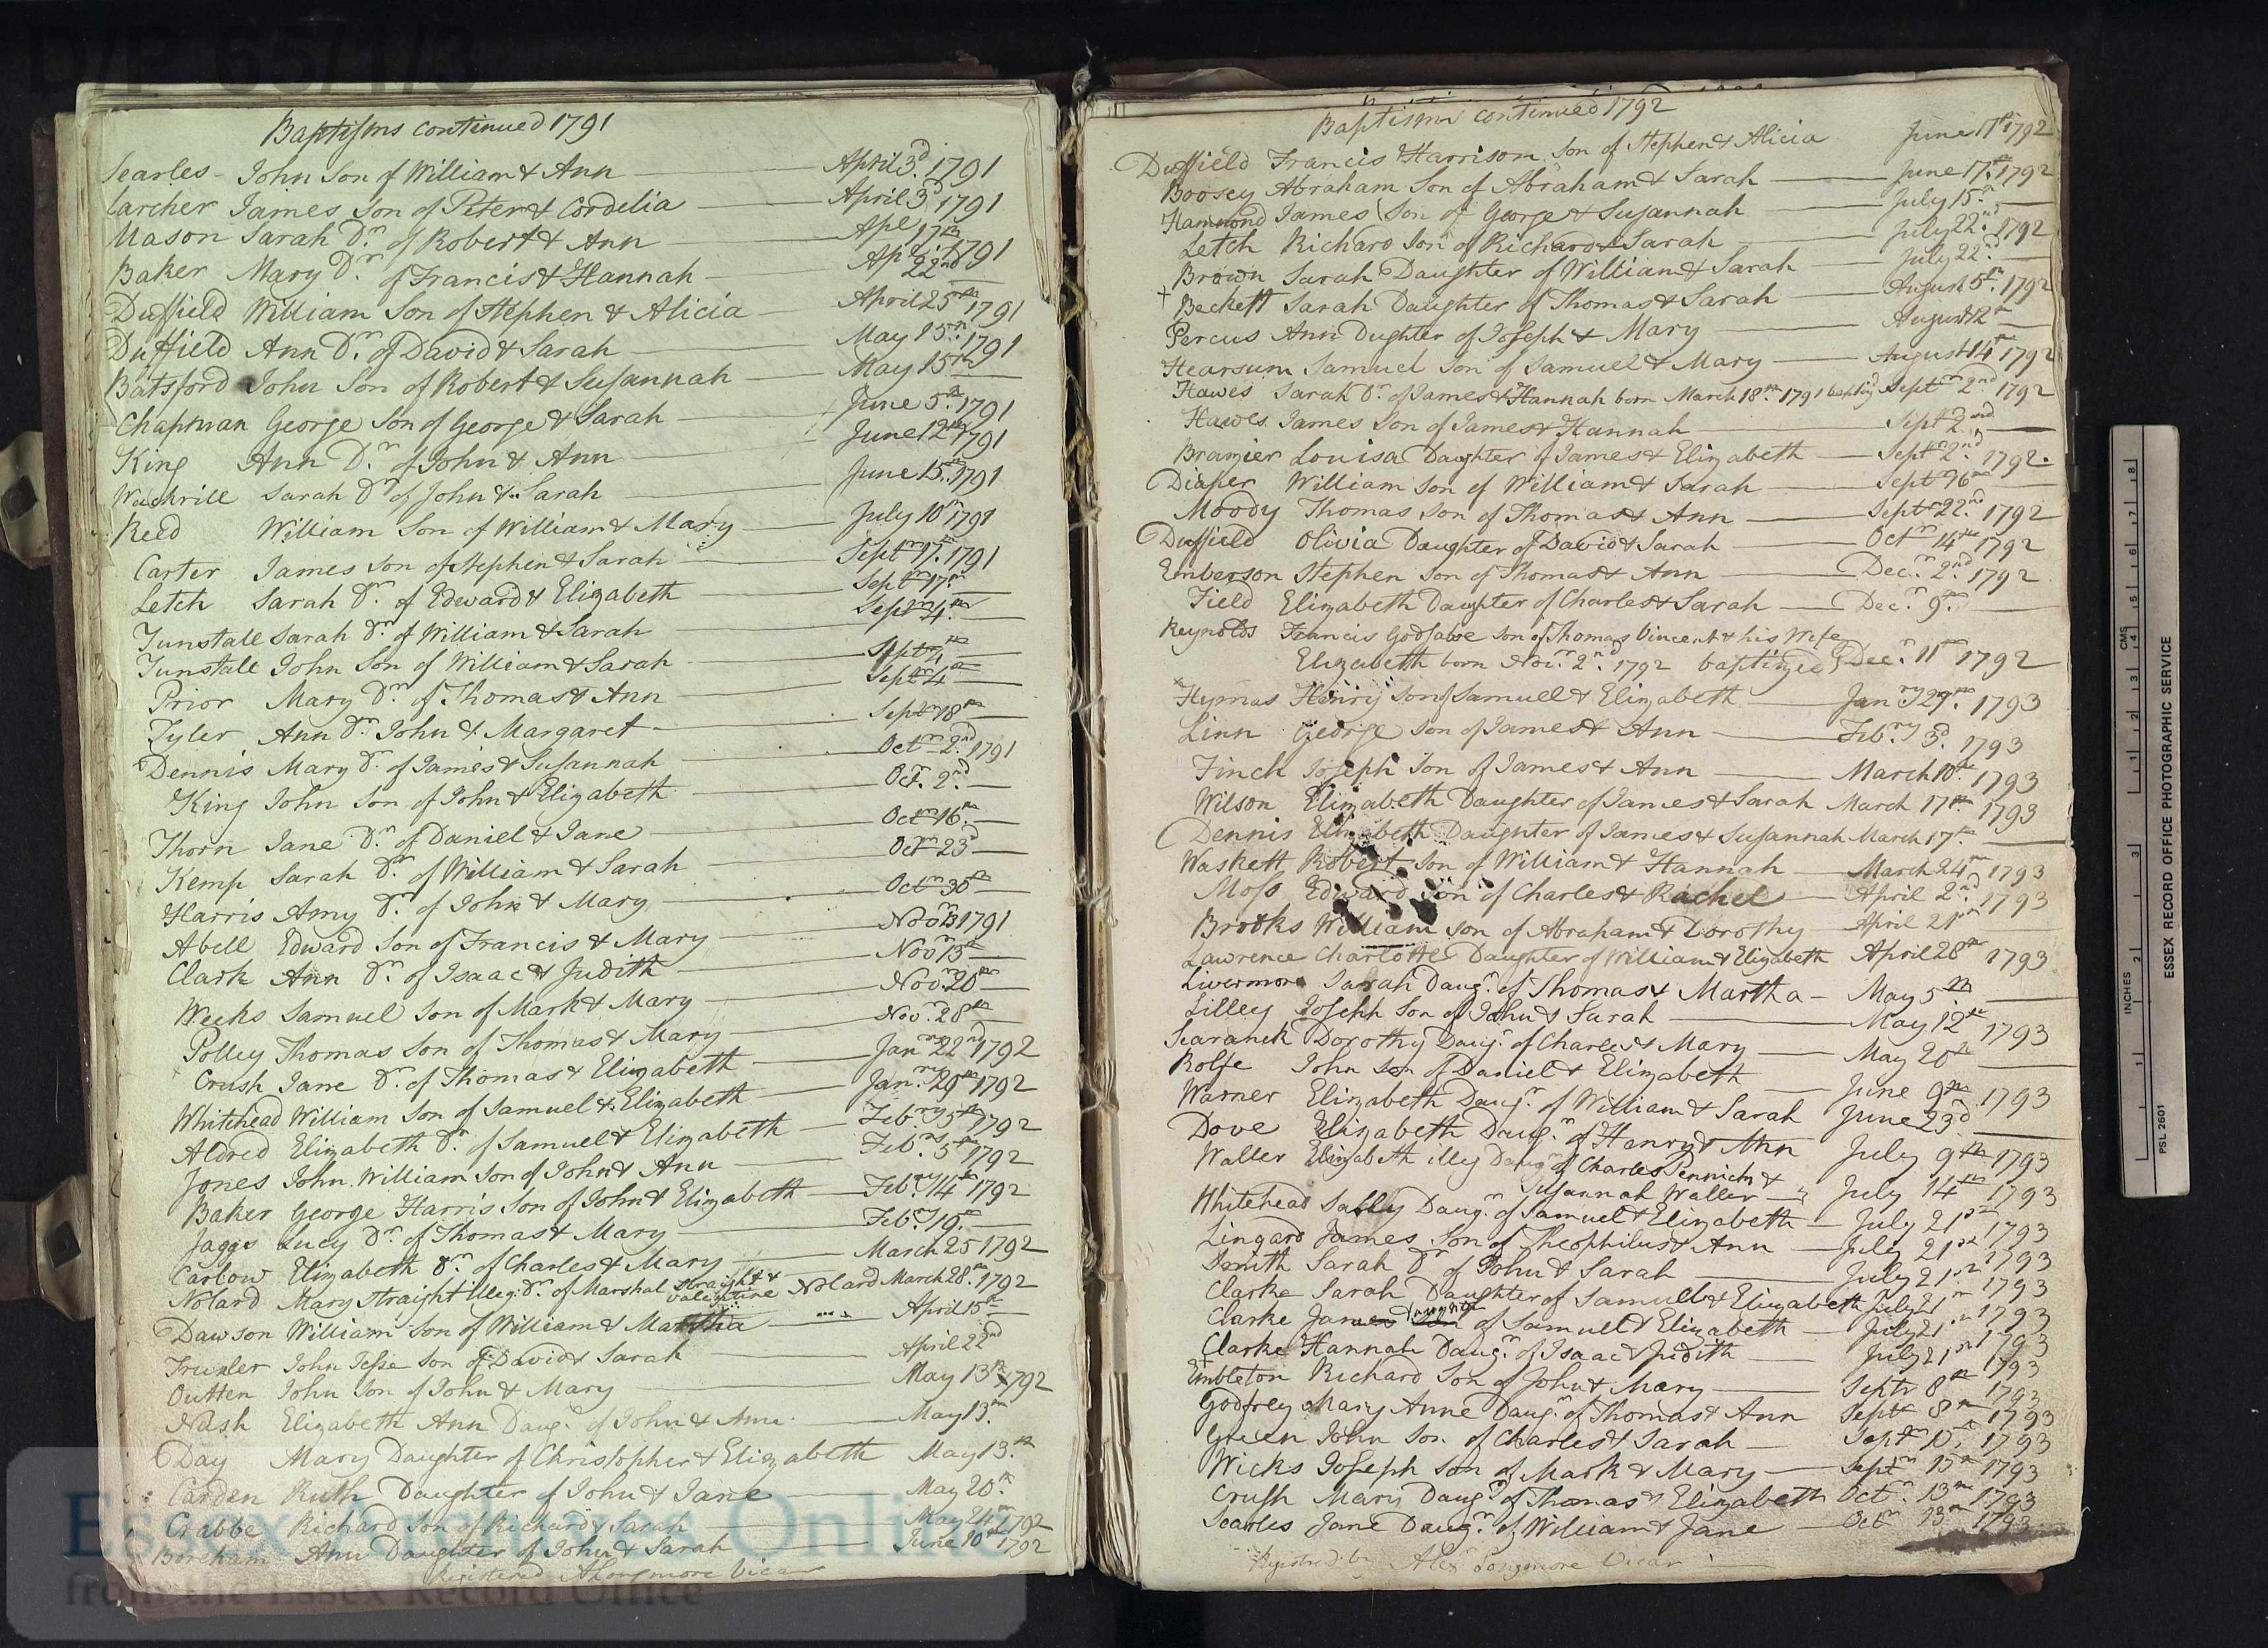 D/P 65/1/3
Baptisms continued 1791
Searles - John Son of William & Ann April 3d. 1791
Carcher James Son of Peter & Cordelia April 3d 1791
Mason Sarah Dr. of Robert & Ann Apl 17th
Baker Mary Dr. of Francis & Hannah 22nd 1791
Duffield William Son of Stephen & Alicia April 25th 1791
Duffield Ann Dr. of David & Sarah May 15th 1791
Batsford John Son of Robert & Susannah May 15th
Chapman George Son of George & Sarah June 5th. 1791
King Ann Dr. of John & Ann June 12th 1791
Sarah Dr of John & Sarah June 15th 1791
Reed William Son of William & Mary July 10th 1791
Carter James Son of Stephen & Sarah Septr 1791
Letch Sarah Dr. of Edward & Elizabeth Septr
Tunstall Sarah Dr. of William & Sarah Septr 4th
Tunstall John Son of William & Sarah Septr 4th
Prior Mary Dr. of Thomas & Ann Septr 4th
Tyler Ann Dr. John & Margaret Septr 18th
Dennis Mary Dr. of James & Susannah Octr 2nd. 1791
King John Son of John & Elizabeth Octr. 2nd
Thorn Jane Dr. of Daniel & Jane Octr 16th
Kemp Sarah Dr. of William & Sarah Octr 23d
Harris Amy Dr. of John & Mary Octr 30th
Abell Edward Son of Francis & Mary Novr 13 1791
Clark Ann Dr. of Isaac & Judith Novr 13th
Weeks Samuel Son of Mark & Mary Novr 20th
Polley Thomas Son of Thomas & Mary Novr. 28th
Crush Jane Dr. of Thomas & Elizabeth Janry 22nd 1792
Whitehead William Son of Samuel & Elizabeth Janry 29th 1792
Aldred Elizabeth Dr. of Samuel & Elizabeth Febry 5th 1792
Jones John William Son of John & Ann Febry 5th 1792
Baker George Harris Son of John & Elizabeth Febry 14th 1792
Jaggs Lucy Dr. of Thomas & Mary Febry 19th
Carlow Elizabeth Dr. of Charles & Mary March 25 1792
Nolard Mary Straight Illeg. Dr. of Marshal Straight & Valentine Nolard March 28th. 1792
Dawson William Son of William & Martha April 15th
John Jesse Son of David & Sarah April 22d
Outten John Son of John & Mary May 13th 1792
Nash Elizabeth Ann Daugr. of John & Ann May 13th
Day Mary Daughter of Christopher & Elizabeth May 13th
Carden Ruth Daughter of John & Jane May 20th
Crabbe Richard Son of Richard & Sarah May 24th 1792
Boreham Ann Daughter of John & Sarah June 10th 1792
Registered A Longmore Vicar
Baptisms continued 1792
Duffield Francis Harrison Son of Stephen & Alicia June 17th 1792
Boosey Abraham Son of Abraham & Sarah June 17th. 1792
Hammond James Son of George & Susannah July 15th
Letch Richard Son of Richard & Sarah July 22nd. 1792
Brown Sarah Daughter of William & Sarah July 22d
+ Beckett Sarah Daughter of Thomas & Sarah August 5th. 1792
Percus Ann Dughter of Joseph & Mary August 12th
Hearsum Samuel Son of Samuel & Mary August 14th 1792
Hawes Sarah Dr. of James & Hannah born March 18th. 1791 Septr 2nd 1792
Hawes James Son of James & Hannah Septr 2nd
Brazier Louisa Daughter of James & Elizabeth Septr 2nd. 1792.
Diaper William Son of William & Sarah Septr
Moody Thomas Son of Thomas & Ann Septr 22nd. 1792
Duffield Olivia Daughter of David & Sarah Octr 14th 1792
Emberson Stephen Son of Thomas & Ann Decr. 2nd. 1792
Field Elizabeth Daughter of Charles & Sarah Decr. 9th.
Reynolds Francis Godsalve Son of Thomas Vincent & his Wife
Elizabeth born Novr. 2nd. 1792 baptized Decr. 11th 1792
Hymas Henry Son of Samuell & Elizabeth Janry 27th. 1793
Linn George Son of James & Ann Febry 3d. 1793
Finch Joseph Son of James & Ann March 10th 1793
Wilson Elizabeth Daughter of James & Sarah March 17th 1793
Dennis Elizabeth Daughter of James & Susannah March 17th
Waskett Robert Son of William & Hannah March 24th 1793
Moss Edward Son of Charles & Rachel April 2nd. 1793
Brooks William Son of Abraham & Dorothy April 21st
Lawrence Charlotte Daughter of William & Elizabeth April 28th 1793
Livermore Sarah Daugr. of Thomas & Martha May 5th
Lilley Joseph Son of John & Sarah May 12th 1793
Scaranek Dorothy Daugr. of Charles & Mary May 20th
Rolfe John Son of Daniel & Elizabeth June 9th 1793
Warner Elizabeth Daugr. of William & Sarah June 23d
Dove Elizabeth Daugr. of Henry & Ann July 9th 1793
Waller Elizabeth illeg Daugr of Charles Pennick &
Susannah Waller July 14th 1793
Whitehead Sally Daugr. of Samuel & Elizabeth July 21st 1793
Lingard James Son of Theophilus & Ann July 21st 1793
Smith Sarah Dr of John & Sarah July 21st 1793
Clarke Sarah Daughter of Samuell & Elizabeth July 21st 1793
Clarke James Daughter of Samuel & Elizabeth July 21st 1793
Clarke Hannah Daugr. of Isaac & Judith July 21st 1793
Embleton Richard Son of John & Mary Septr 8th 1793
Godfrey Mary Anne Daugr. of Thomas & Ann Septr 8th 1793
Green John Son of Charles & Sarah Septr 15th 1793
Wicks Joseph Son of Mark & Mary Septr 15th 1793
Crush Mary Daugr of Thomas & Elizabeth Octr. 13th 1793
Searles Jane Daugr. of William & Jane Octr 13th 1793
Registred by Alexr Longmore Vicar
INCHES
CMS
ESSEX RECORD OFFICE PHOTOGRAPHIC SERVICE
PSL 2601
Essex Archives Online
from the Essex Record Office